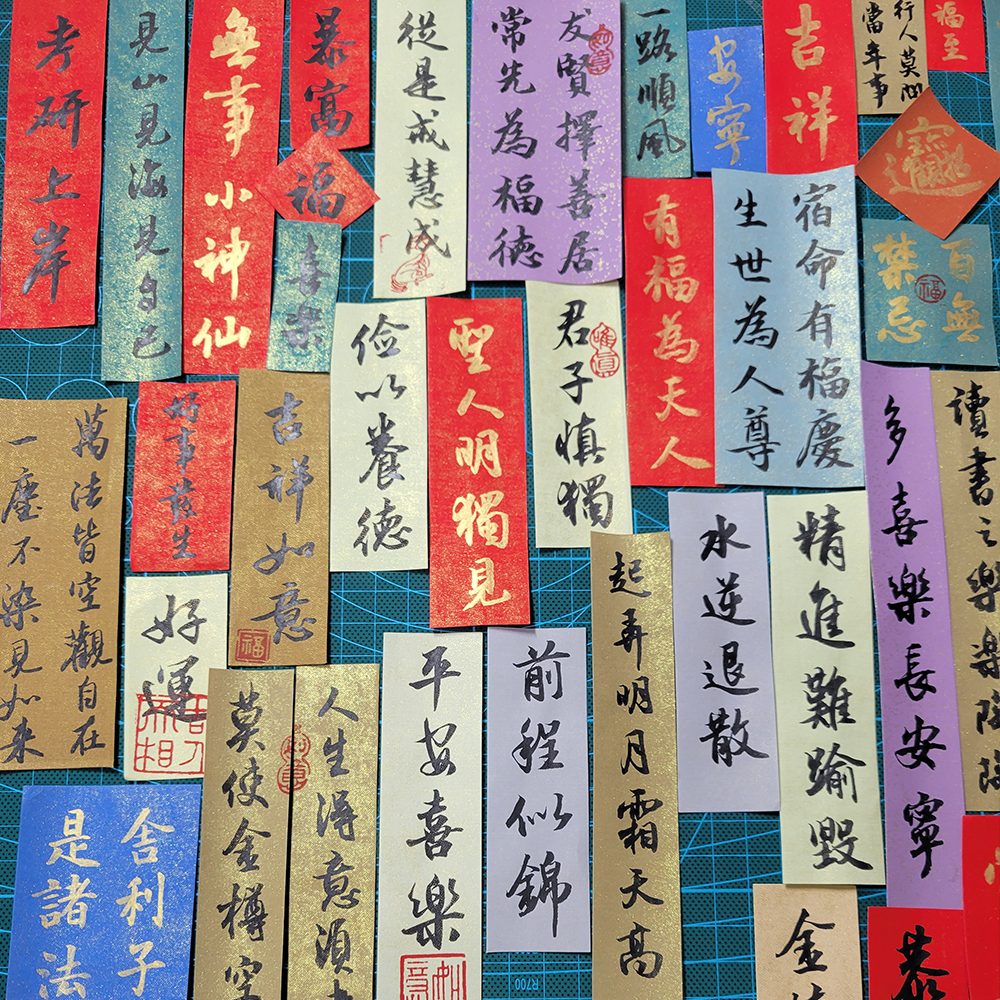 考研上岸
見山見海見自己
無事小神仙
暴富
福
喜樂
從是戒慧成
友賢擇善居
常先為福德
一路順風
安寧
吉祥
行人莫問
當年事
福至
招財進寶
百無
禁忌
有福為天人
宿命有福慶
生世為人尊
君子慎獨
聖人明獨見
儉以養德
吉祥如意
福
好事發生
萬法皆空觀自在
一塵不染見如来
好運
舍利子
是諸法
人生得意須
莫使金樽空
平安喜樂
前程似錦
起弄明月霜天高
水逆退散
精進難踰毀
多喜樂長安寧
讀書之樂樂陶陶
金
恭